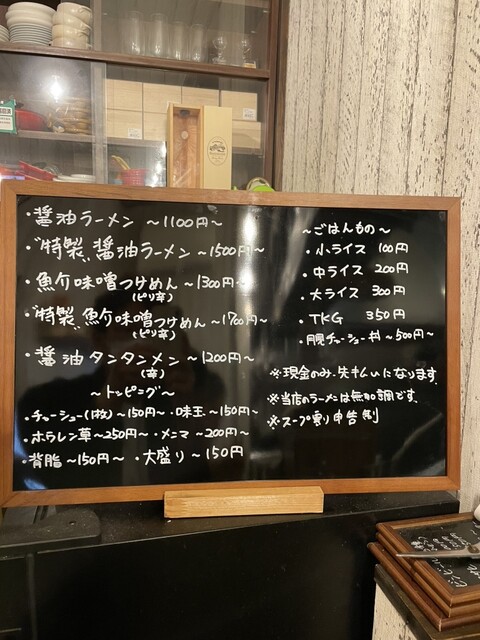 ・醤油ラーメン ～1100円～
・〝特製〟醤油ラーメン ～1500円～
・魚介味噌つけめん ～1300円～
(ピリ辛)
・〝特製〟魚介味噌つけめん ～1700円～
(ピリ辛)
・醤油タンタンメン ～1200円～
(辛)
～トッピング～
・チャーシュー(1枚)～150円～ ・味玉～150円～
・ホウレン草～250円～ ・メンマ ～200円～
・背脂 ～150円～ ・大盛り～150円
～ごはんもの～
・小ライス 100円
・中ライス 200円
・大ライス 300円
・TKG 350円
・チャーシュー丼 ～500円～
※現金のみ、先払いになります
※当店のラーメンは無加調です。
※スープ割り申告制